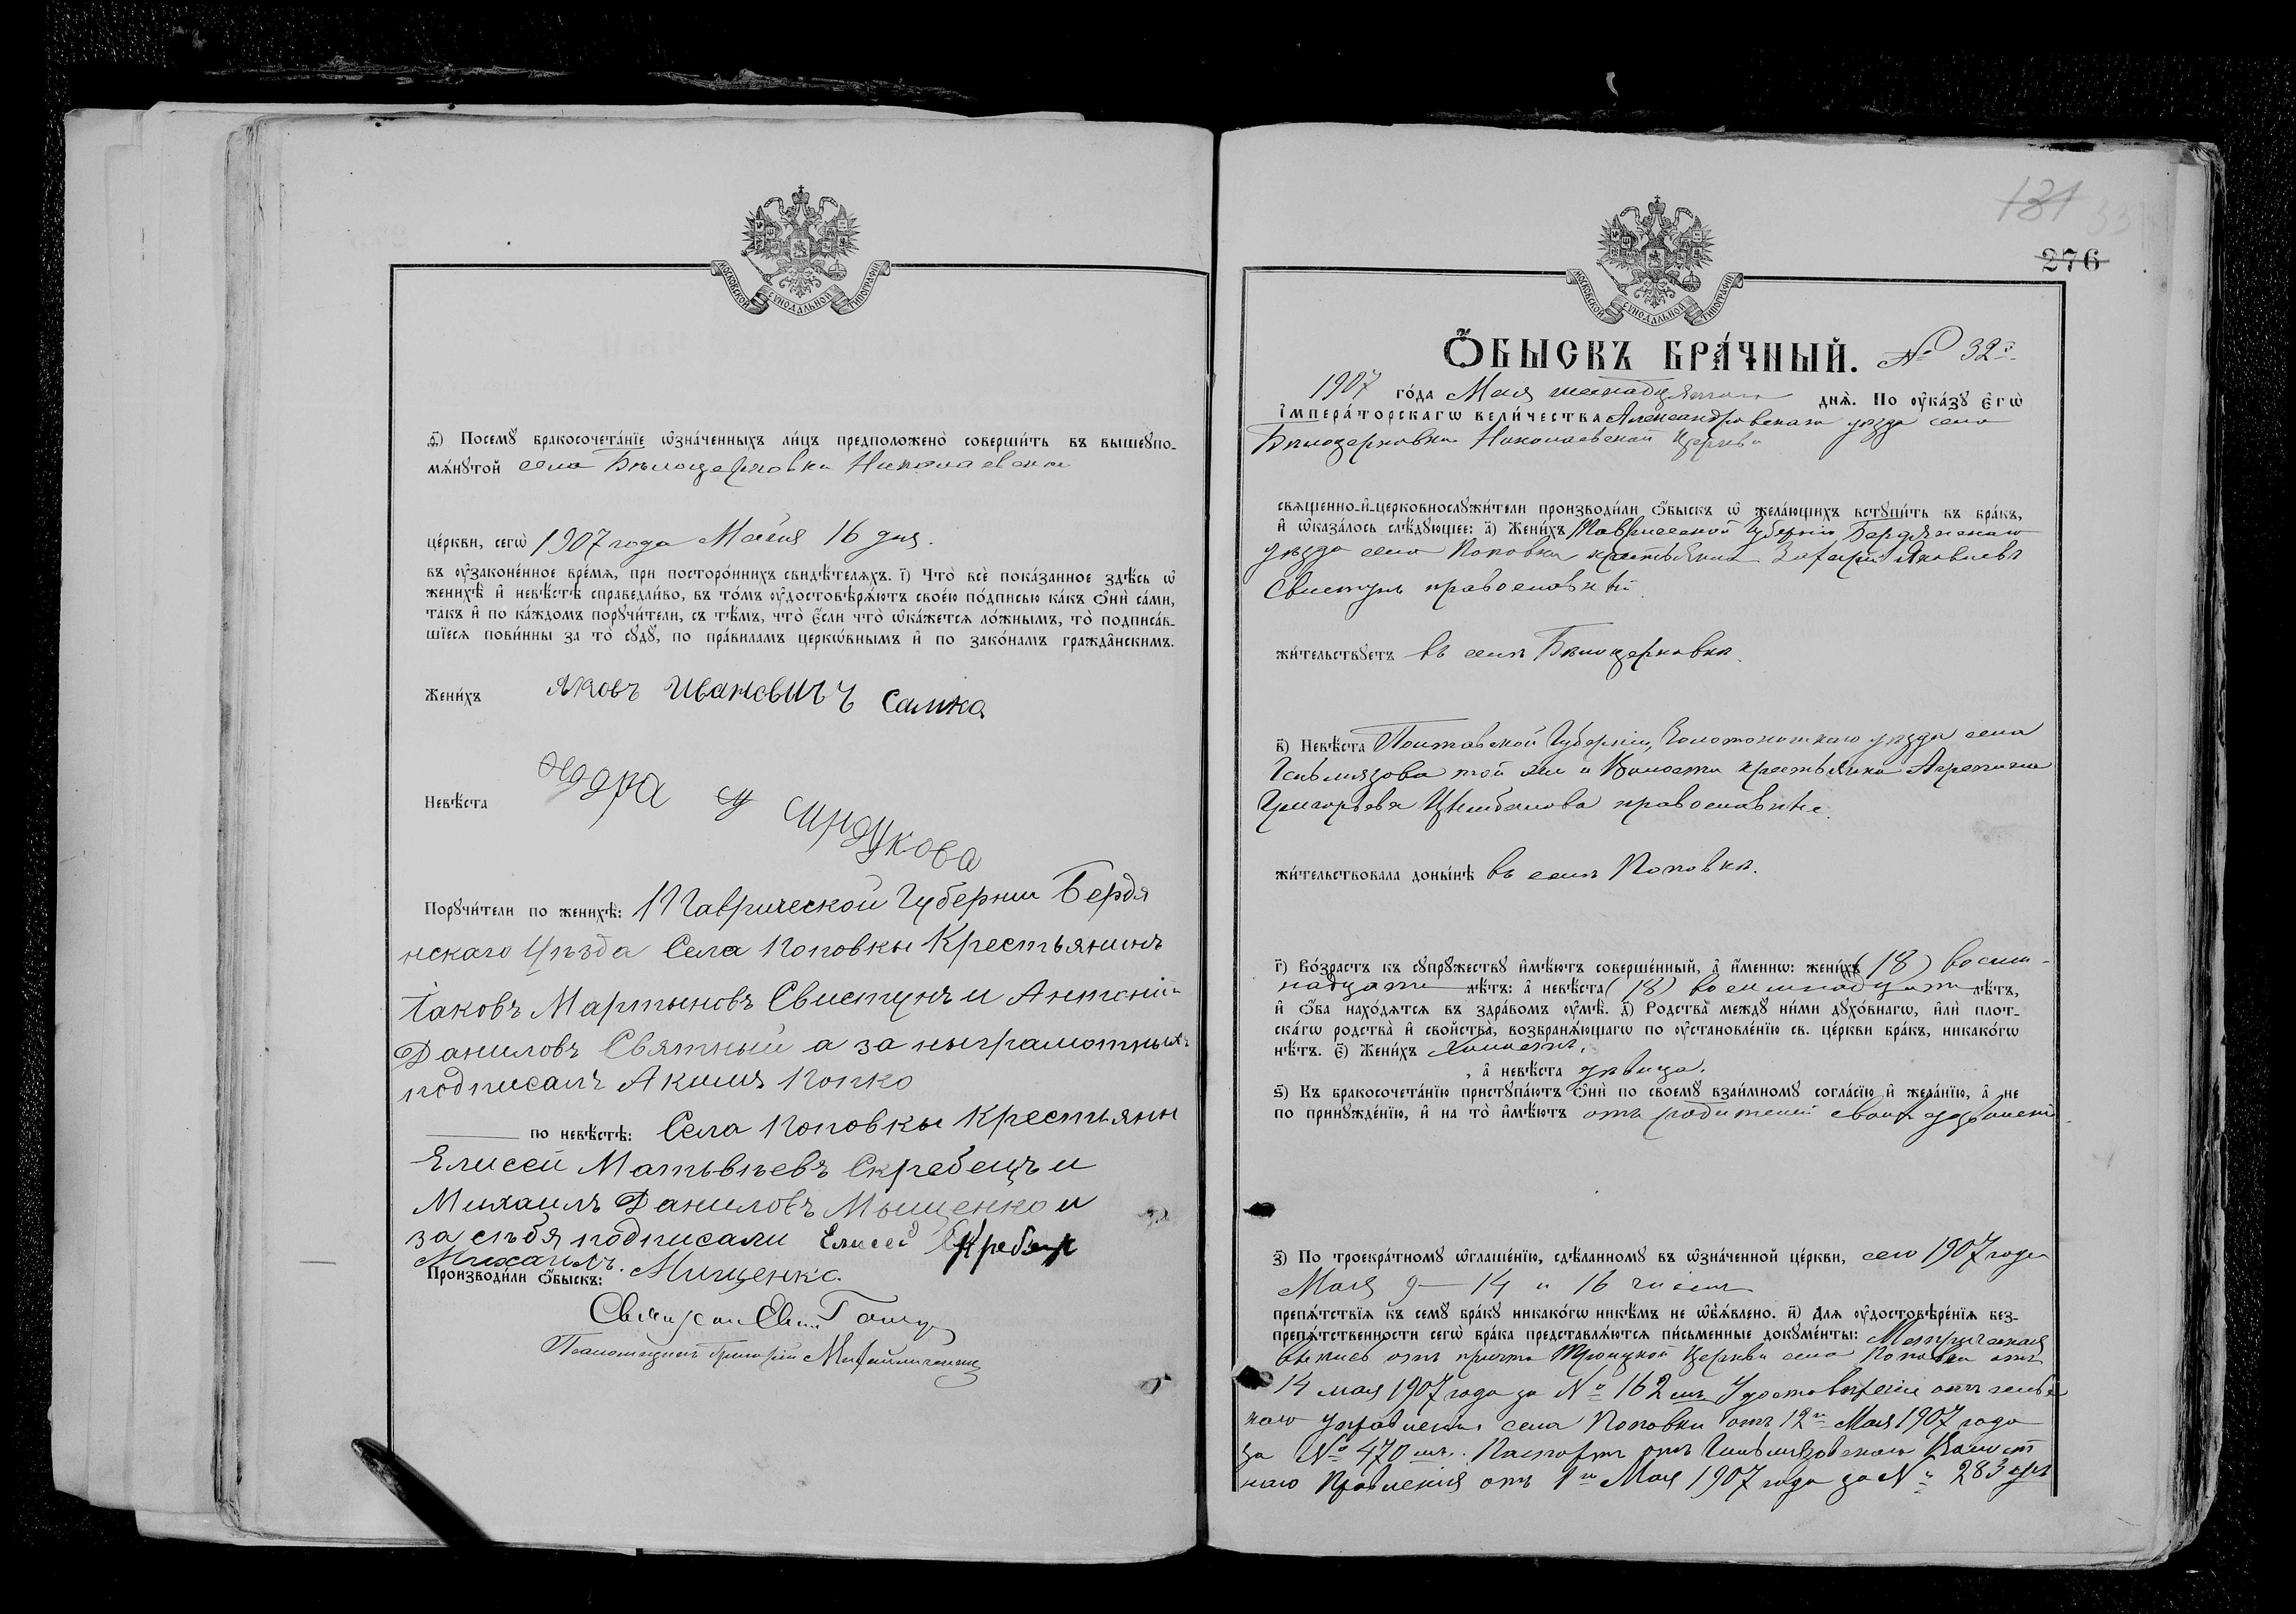 МОСКОВСКОЙ СѴНОДАЛЬНОЙ ТИПОГРАФІИ
ѳ҃) Посемꙋ̀ бракосочета́нїе ѡ҆зна́ченныхъ ли́цъ предположено̀ соверши́ть въ вышеꙋпо-
мѧ́нꙋтой села Бѣлоцерковки Николаевской
це́ркви, сегѡ̀ 1907 года Маія 16 дня.
въ ᲂу҆зако́ненное вре́мѧ, при посторо́ннихъ свидѣ́телѧхъ. і҃) Что̀ всѐ пока́занное здѣ́сь ѡ҆
женихѣ̀ и҆ невѣ́стѣ справедли́во, въ то́мъ ᲂу҆достовѣрѧ́ютъ свое́ю по́дписью ка́къ ѻ҆нѝ са́ми,
та́къ и҆ по ка́ждомъ порꙋчи́тели, съ тѣ́мъ, что̀ є҆́сли что̀ ѡ҆ка́жетсѧ ло́жнымъ, то̀ подписа́в-
шїесѧ пови́нны за то̀ сꙋдꙋ̀, по пра́виламъ церко́внымъ и҆ по зако́намъ гражда́нскимъ.
Жени́хъ Яковъ Ивановичъ Самко
Невѣ́ста
Индукова
Порꙋчи́тели по женихѣ̀: Таврической Губерніи Бердя
нскаго Уѣзда Села Поповки Крестьянинъ
Іаковъ Мартыновъ Свистунъ и Антоній
Даниловъ Святный а за ныграмотныхъ
подписалъ Акимъ Попко
по невѣ́стѣ: Села Поповки Крестьяны
Елисей Матьвѣевъ Скребецъ и
Михаилъ Даниловъ Мыщенко и
за сѣбя подписали Елисей Скребец
Михаилъ Мищенко.
Производи́ли ѻ҆́быскъ:
Псаломщикъ Григорій
131
276
МОСКОВСКОЙ СѴНОДАЛЬНОЙ ТИПОГРАФІИ
Ѻ҆́БЫСКЪ БРА́ЧНЫЙ. № 32й
1907 го́да Мая шестнадцатаго днѧ̀. По ᲂу҆ка́зꙋ Є҆гѡ̀
І҆мпера́торскагѡ вели́чества Александровскаго уѣзда села
Бѣлоцерковки Николаевской Церкви
свѧще́нно-и҆-церковнослꙋжи́тели производи́ли ѻ҆́быскъ ѡ҆ жела́ющихъ встꙋпи́ть въ бра́къ,
и҆ ѡ҆каза́лось слѣ́дꙋющее: а҃) Жени́хъ Таврической Губерніи Бердянскаго
уѣзда села Поповки крестьянинъ Захарій Яковлевъ
Свистунъ православный.
жи́тельствꙋетъ въ селѣ Бѣлоцерковкѣ.
в҃) Невѣ́ста Полтавской Губерніи, Золотоношскаго уѣзда села
Гельмязова той же и Волости крестьянка Агрепина
Григорьева Цымбалова православная.
жи́тельствовала доны́нѣ въ селѣ Поповкѣ.
г҃) Во́зрастъ къ сꙋпрꙋ́жествꙋ и҆мѣ́ютъ соверше́нный, а҆ и҆́меннѡ: жени́хъ (18) восем-
надцати лѣ́тъ: а҆ невѣ́ста (18) восемнадцати лѣ́тъ,
и҆ ѻ҆́ба нахо́дѧтсѧ въ здра́вомъ ᲂу҆мѣ̀. д҃) Родства̀ междꙋ̀ ни́ми дꙋхо́внагѡ, и҆лѝ плот-
ска́гѡ родства̀ и҆ свойства̀, возбранѧ́ющагѡ по ᲂу҆становле́нїю св. це́ркви бра́къ, никако́гѡ
нѣ́тъ. є҃) Жени́хъ Холостъ,
а҆ невѣ́ста дѣвица.
ѕ҃) Къ бракосочета́нїю пристꙋпа́ютъ ѻ҆нѝ по своемꙋ̀ взаи́мномꙋ согла́сїю и҆ жела́нїю, а҆ не
по принꙋжде́нїю, и҆ на то̀ и҆мѣ́ютъ отъ родителей своихъ дозволеніе.
з҃) По троекра́тномꙋ ѡ҆глаше́нїю, сдѣ́ланномꙋ въ ѡ҆зна́ченной це́ркви, сего 1907 года
Мая 9 — 14 и 16 чиселъ
препѧ́тствїѧ къ семꙋ̀ бра́кꙋ никако́гѡ никѣ́мъ не ѡ҆б̾ѧ́влено. и҃) Длѧ ᲂу҆достовѣре́нїѧ без-
препѧ́тственности сегѡ̀ бра́ка представлѧ́ютсѧ пи́сьменные докꙋме́нты: Метрическая
выпись отъ причта Троицкой Церкви села Поповки отъ
14 мая 1907 года за № 162мъ Удостовѣреніе отъ сельс
каго управленія села Поповки отъ 12го Мая 1907 года
за № 470мъ. Паспортъ отъ Гельмязовскаго Волост
наго Правленія отъ 1го Мая 1907 года за № 283